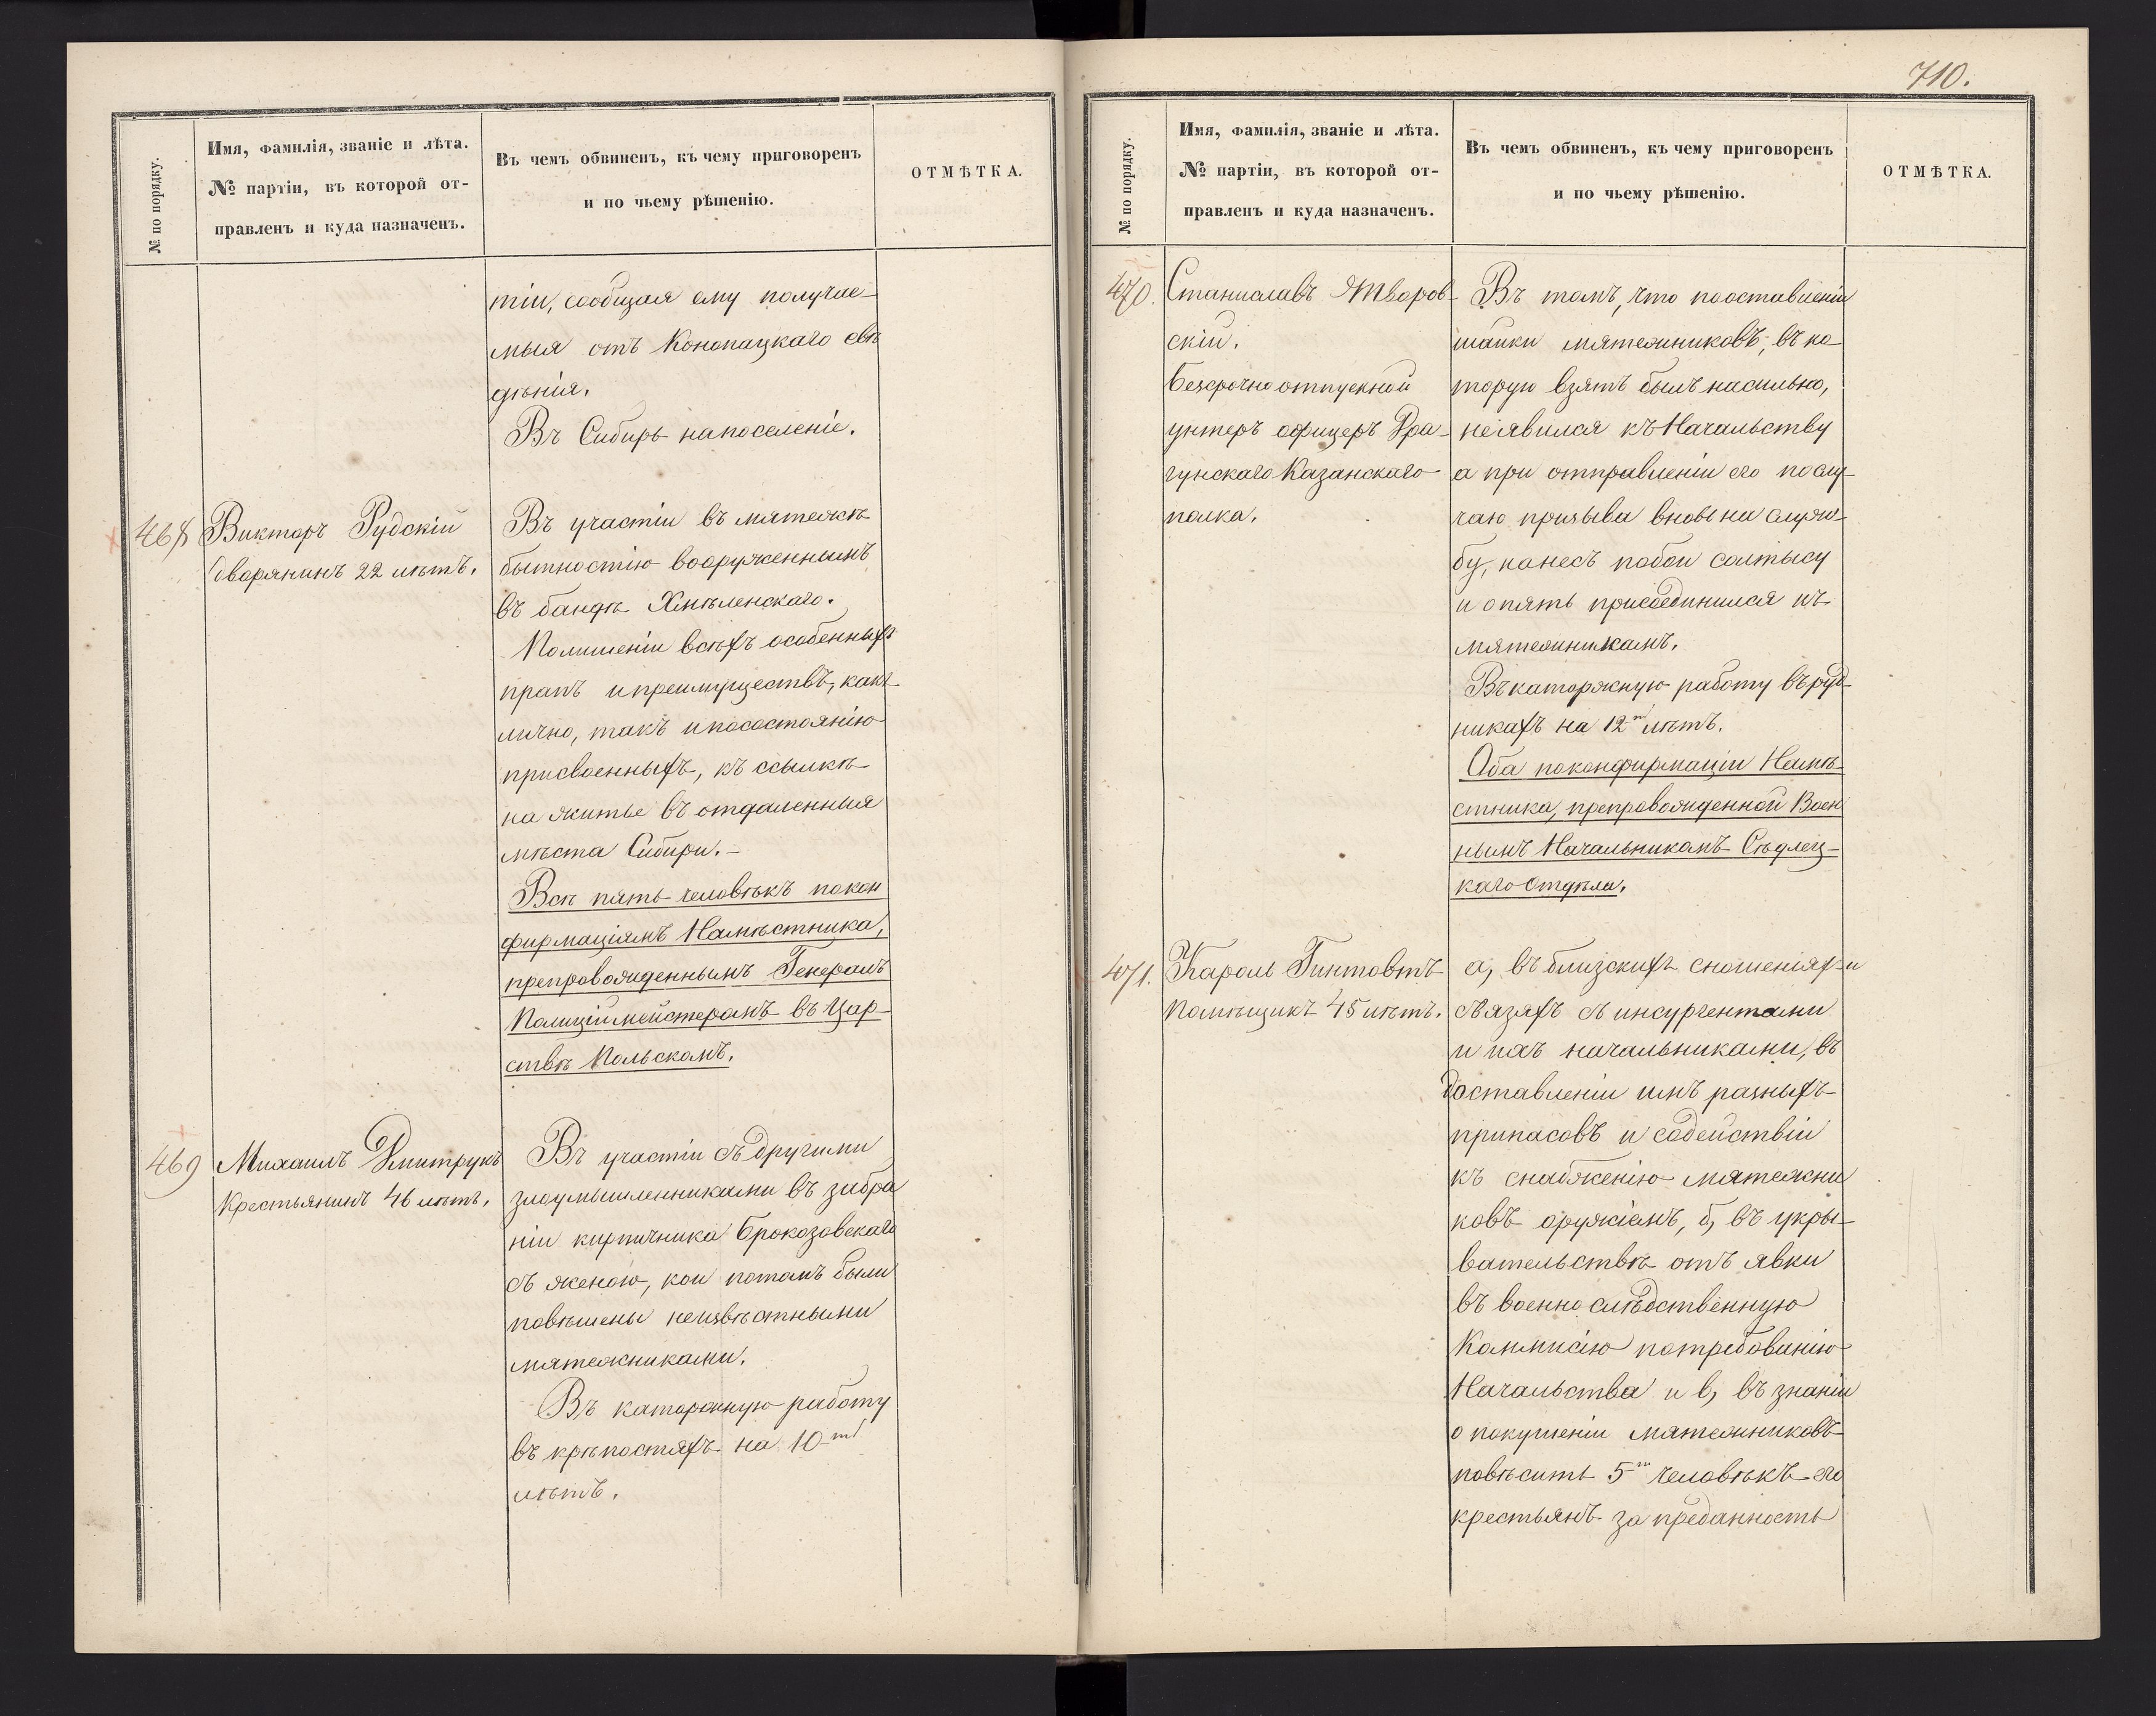 № по порядку.
Имя, фамилія, званіе и лѣта.
№ партіи, въ которой от-
правленъ и куда назначенъ.
Въ чемъ обвиненъ, къ чему приговоренъ
и по чьему рѣшенію.
ОТМѢТКА.
тіи, сообщая ему получае-
мыя отъ Конопацкаго свѣ
дѣнія.
Въ Сибирь на поселеніе.
468
Викторъ Рудскій
дворянинъ 22 лѣтъ.
Въ участіи въ мятежѣ
бытностію вооруженнымъ
въ бандѣ Хмѣленскаго.
По лишеніи всѣхъ особенныхъ
правъ и преимуществъ, какъ
лично, такъ и по состоянію
присвоенныхъ, къ ссылкѣ
на житье въ отдаленныя
мѣста Сибири.-
Всѣ пять человѣкъ по кон
фирмаціямъ Намѣстника,
препровожденнымъ Генералъ
Полиціймейстеромъ въ Цар-
ствѣ Польскомъ.
469
Михаилъ Дмитрукъ
Крестьянинъ 46 лѣтъ.
Въ участіи съ другими
злоумышленниками въ забра
ніи кирпичника Брокозовскаго
съ женою, кои потомъ были
повѣшены неизвѣстными
мятежниками.
Въ каторжную работу
въ крѣпостяхъ на 10ть
лѣтъ.
710.
№ по порядку.
Имя, фамилія, званіе и лѣта.
№ партіи, въ которой от-
правленъ и куда назначенъ.
Въ чемъ обвиненъ, къ чему приговоренъ
и по чьему рѣшенію.
ОТМѢТКА.
470.
Станиславъ Яворов-
скій.
Безсрочно отпускной
унтеръ офицеръ Дра-
гунскаго Казанскаго
полка.
Въ томъ, что по оставленіи
шайки мятежниковъ, въ ко-
торую взятъ былъ насильно,
не явился къ Начальству
а при отправленіи его по слу-
чаю призыва вновь на служ-
бу, нанесъ побои солтысу
и опять присоединился къ
мятежникамъ.
Въ каторжную работу въ руд-
никахъ на 12ть лѣтъ.
Оба по конфирмаціи Намѣ-
стника, препровожденной Воен
нымъ Начальникомъ Сѣдлец-
каго Отдѣла.
471.
Кароль Гинтовтъ
Помѣщикъ 45 лѣтъ.
а, въ близскихъ сношеніяхъ и
связяхъ съ инсургентами
и ихъ начальниками, въ
доставленіи имъ разныхъ
припасовъ и содействіи
къ снабженію мятежни
ковъ оружіемъ, б, въ укры-
вательствѣ отъ явки
въ военно слѣдственную
Коммисію по требованію
Начальства и в, въ знаніи
о покушеніи мятежниковъ
повѣсить 5ть человѣкъ его
крестьянъ за преданность